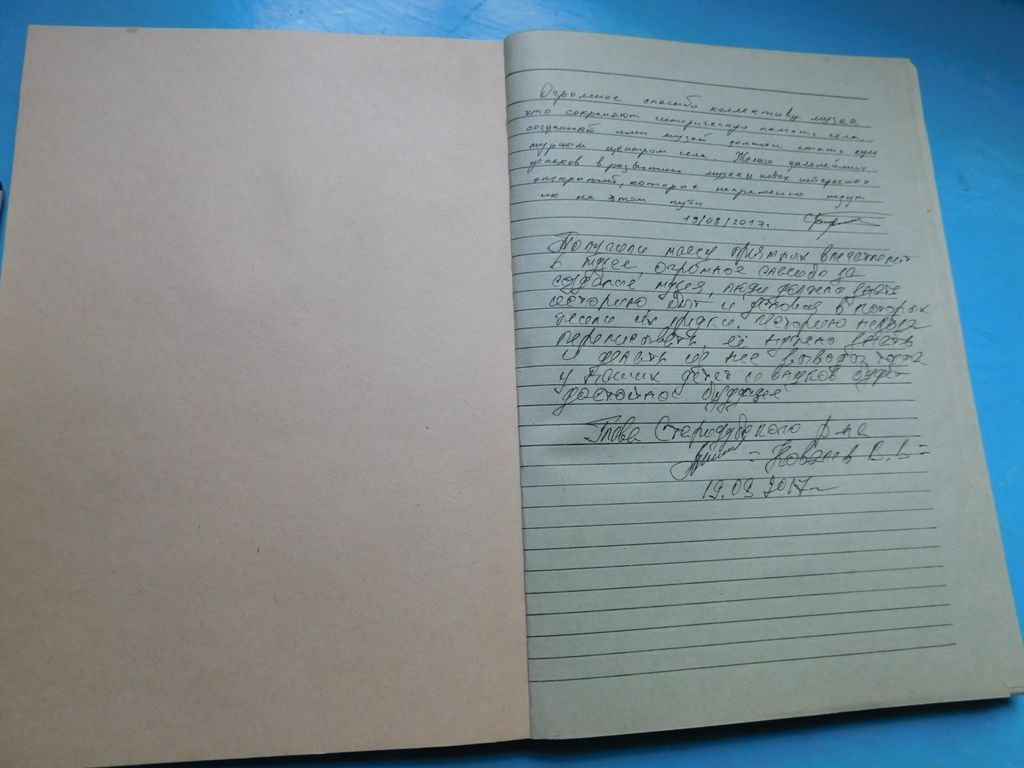 Огромное спасибо коллективу музея
что сохраняют историческую память села,
созданный ими музей должен стать куль
турным центром села. Желаю дальнейших
успехов в развитии музея и новых интересных
открытий, которые непременно ждут
их на этом пути
19/08/2017г.
Получили массу приятных впечатлений
в музее, огромное спасибо за
создание музея, люди должны знать
историю быт и условия в которых
жили их предки. Историю нельзя
переписывать, её нужно знать
и делать из нее выводы тогда
у наших детей и внуков будет
достойное будущее
Глава Стародубского р-на
= Ковалев В. В =
19.08 2017г